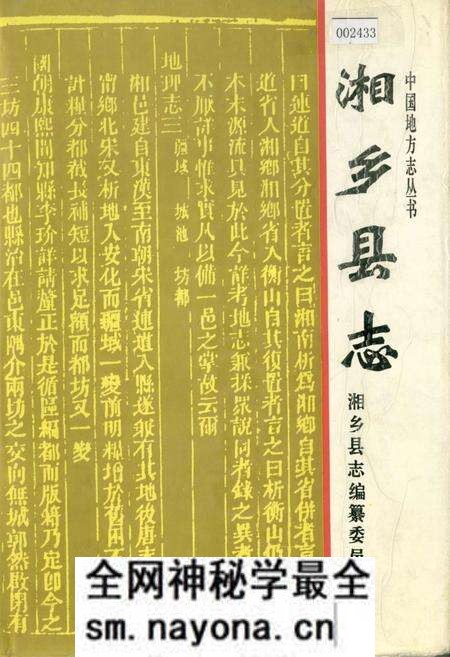 002433
中国地方志丛书
湘乡县志
湘乡县志编纂委员
曰连道自其分置者言之曰湘南析为湘鄉自其省併者言
道省入湘鄉湘鄉省入衡山自其復置者言之曰析衡山仍
本末源流具見於此今詳考地志兼採眾說同者錄之異者
不厭詳事惟求實凡以備一邑之掌故云爾
地理志三 疆域 城池 坊都
湘邑建自東漢至南朝宋省連道入縣遂兼有其地後唐志
甯鄉北宋又析地入安化而疆域一變前明糧增於舊
計糧分都截長補短以求足額而都坊又一變
國朝康熙間知縣李玠詳請釐正於是循區編都而版籍乃定即今之
三坊四十四都也縣治在邑東隅介兩坊之交向無城郭然啟閉有
全网神秘学最全
sm.nayona.cn